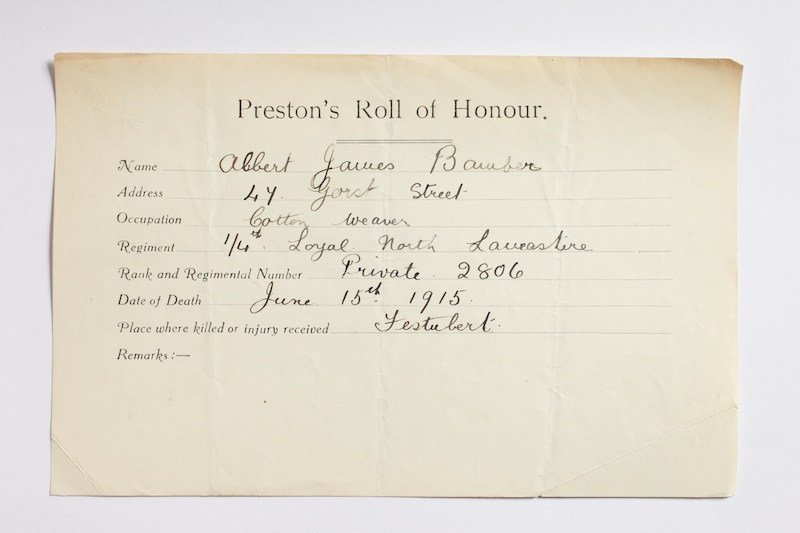 Preston's Roll of Honour.
Name Albert James Bamber
Address 47. Gorst Street
Occupation Cotton Weaver
Regiment 1/4th. Loyal North Lancastire
Rank and Regimental Number Private. 2806
Date of Death June 15th. 1915.
Place where killed or injury received Festubert.
Remarks :—